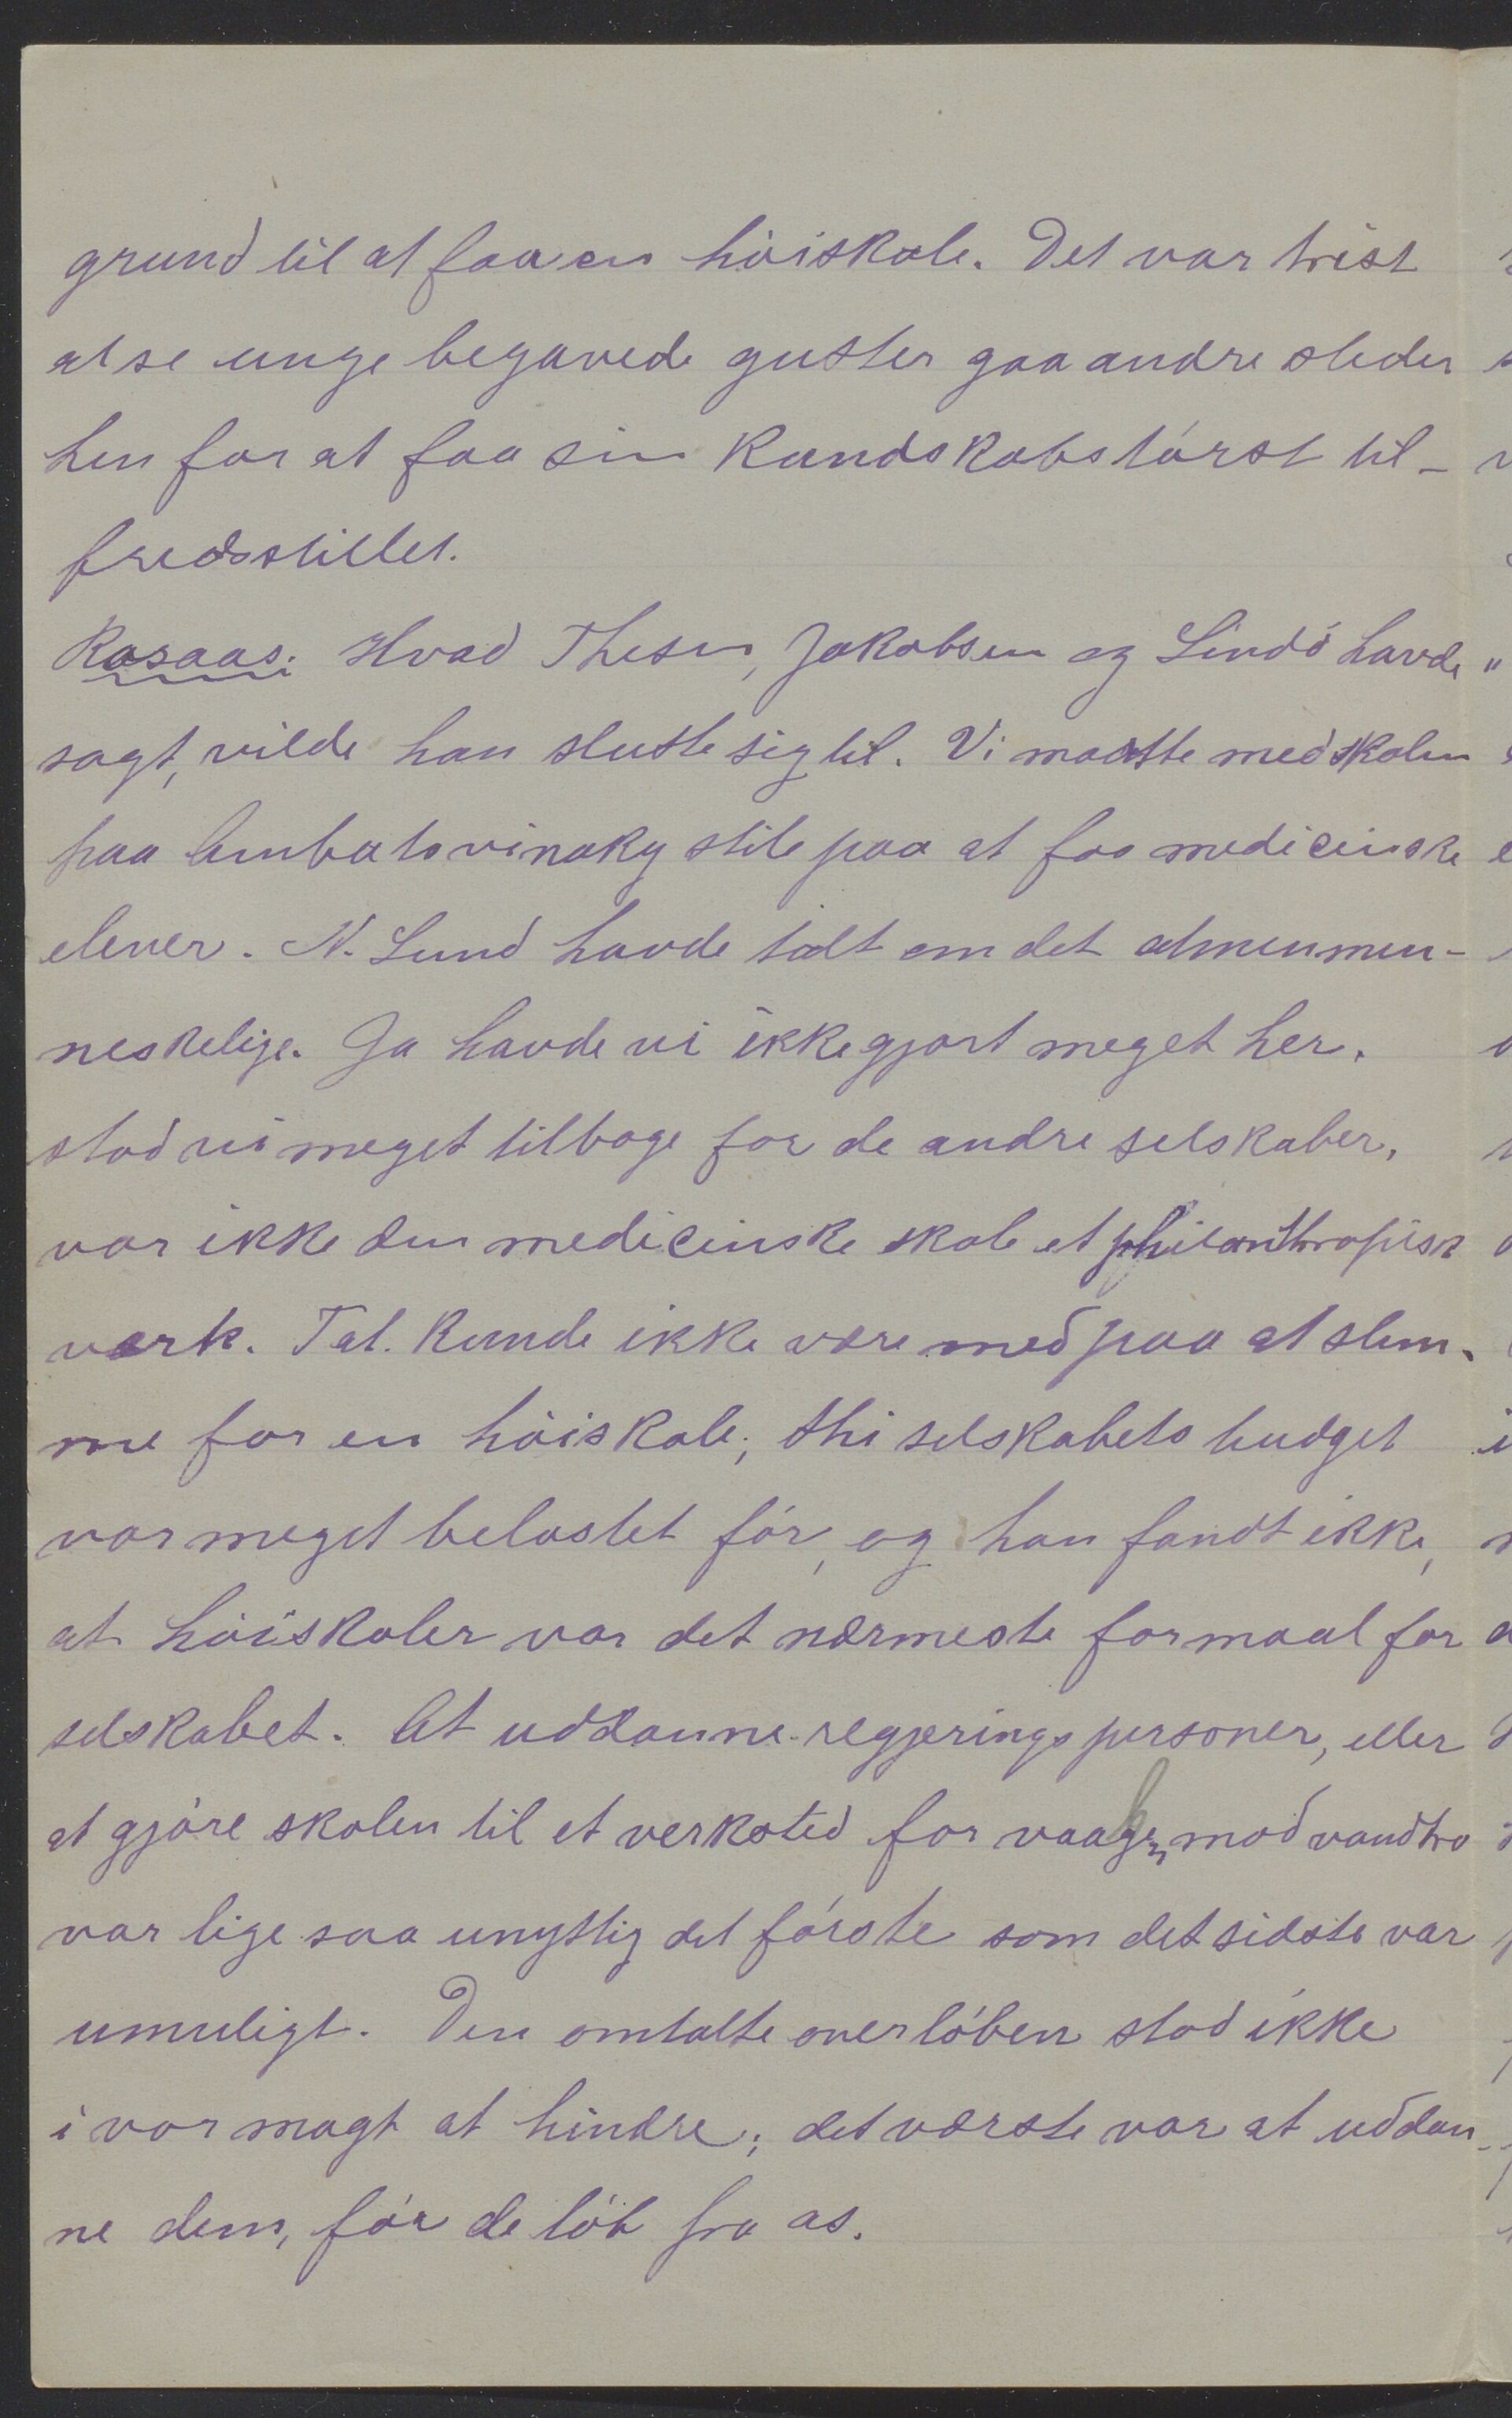 grund til at faa en höiskole. Det var trist
at se unge begavede gutter gaa andre steder
hen for at faa sin Kundskabstörst til-
fredsstillet.
Rosaas: Hvad Thesen, Jakobsen og Lindö havde
sagt, vilde han slutte sig til. Vi maatte med skolen
paa Ambatovinaky stile paa at faa medicinske
elever. N. Lund havde talt om det almenmen-
neskelige. Ja havde vi ikke gjort meget her,
stod vi meget tilbage for de andre selskaber,
var ikke den medicinske skole et philanthropisk
værk. Tal. kunde ikke være med paa at stem-
me for en höiskole; thi selskabets budget
var meget belastet för, og han fandt ikke,
at höiskoler var det nærmeste formaal for
selskabet. At uddanne regjeringspersoner, eller
at gjöre skolen til et verksted for vaaben mod vandtro
var lige saa unyttig det förste som det sidste var
umuligt. Den omtalte overlöben stod ikke
i vor magt at hindre; det værste var at uddan-
ne dem, för de löb fra os.